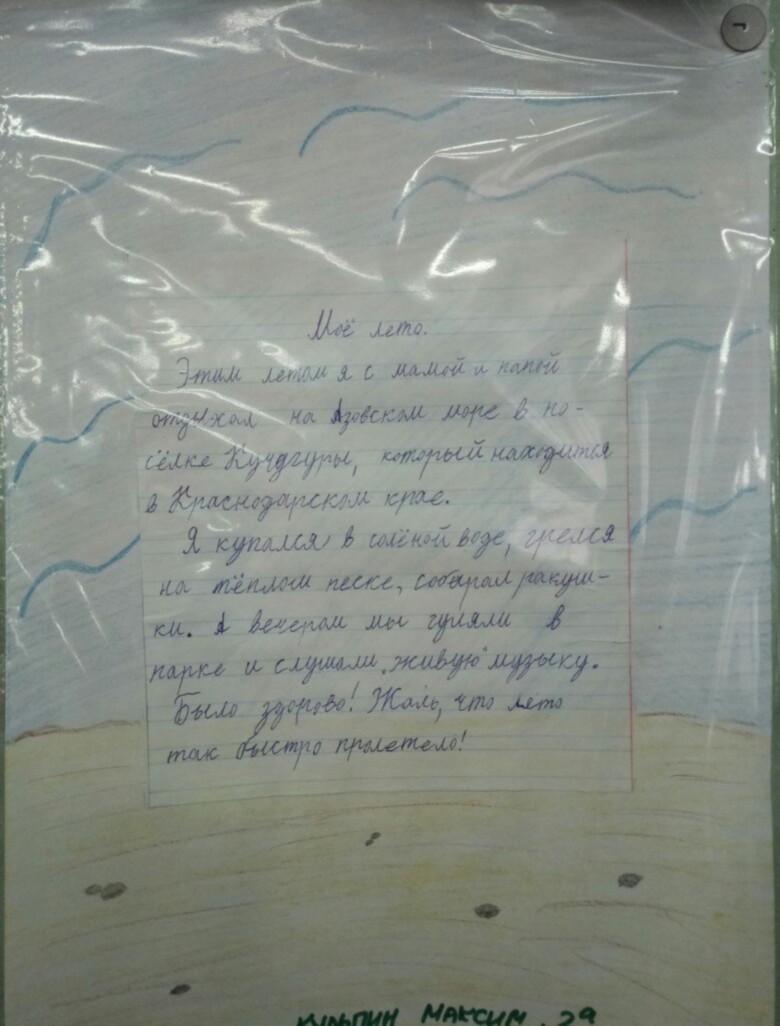 Моё лето.
Этим летом я с мамой и папой
отдыхал на Азовском море в по-
сёлке Кучугуры, который находится
в Краснодарском крае.
Я купался в солёной воде, грелся
на тёплом песке, собирал ракуш-
ки. А вечером мы гуляли в
парке и слушали „живую" музыку.
Было здорово! Жаль, что лето
так быстро пролетело!
Кульпин Максим, 2а